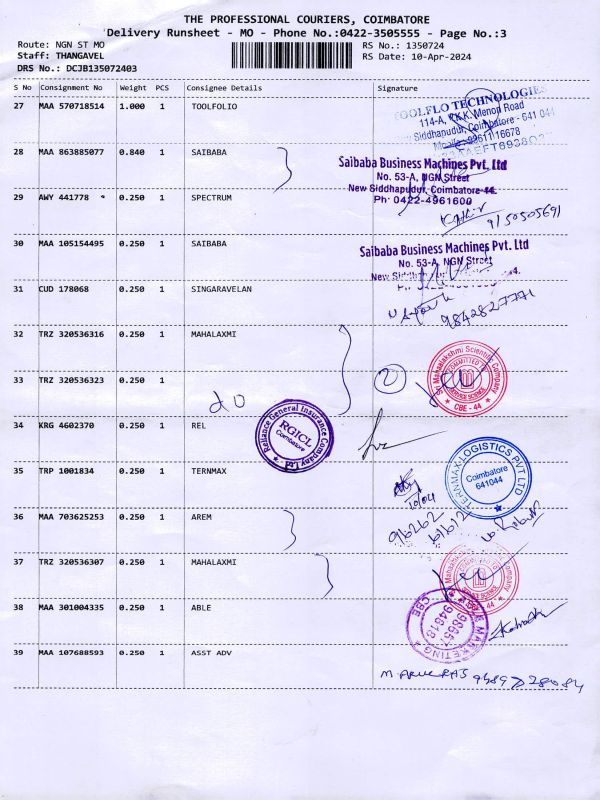 THE PROFESSIONAL COURIERS, COIMBATORE
Delivery Runsheet - MO - Phone No.:0422-3505555 - Page No.:3
Route: NGN ST MO
RS No.: 1350724
Staff: THANGAVEL
RS Date: 10-Apr-2024
DRS No.: DCJB135072403
S No Consignment No Weight PCS Consignee Details Signature
27 MAA 570718514 1.000 1 TOOLFOLIO
TOOLFLO TECHNOLOGIES
114-A, P.K.K. Menon Road
Siddhapudur, Coimbatore - 641 044
28 MAA 863885077 0.840 1 SAIBABA
Saibaba Business Machines Pvt. Ltd
No. 53-A, NGN Street
New Siddhapudur, Coimbatore-44.
Ph: 0422-4961600
29 AWY 441778 0.250 1 SPECTRUM
9150505691
30 MAA 105154495 0.250 1 SAIBABA
Saibaba Business Machines Pvt. Ltd
No. 53-A, NGN Street
31 CUD 178068 0.250 1 SINGARAVELAN
9842827771
32 TRZ 320536316 0.250 1 MAHALAXMI
2
Sri Mahaalakshmi Scientific Company
COMMITTED TO
SERVICE SCIENCE
CBE - 44
33 TRZ 320536323 0.250 1
do
34 KRG 4602370 0.250 1 REL
Reliance General Insurance Company Ltd
RGICL
Coimbatore
35 TRP 1001834 0.250 1 TERNMAX
TERNMAX LOGISTICS PVT LTD
Coimbatore
641044
10/04
36 MAA 703625253 0.250 1 AREM
96262
37 TRZ 320536307 0.250 1 MAHALAXMI
38 MAA 301004335 0.250 1 ABLE
MARKETING
CBE
98651
94818
39 MAA 107688593 0.250 1 ASST ADV